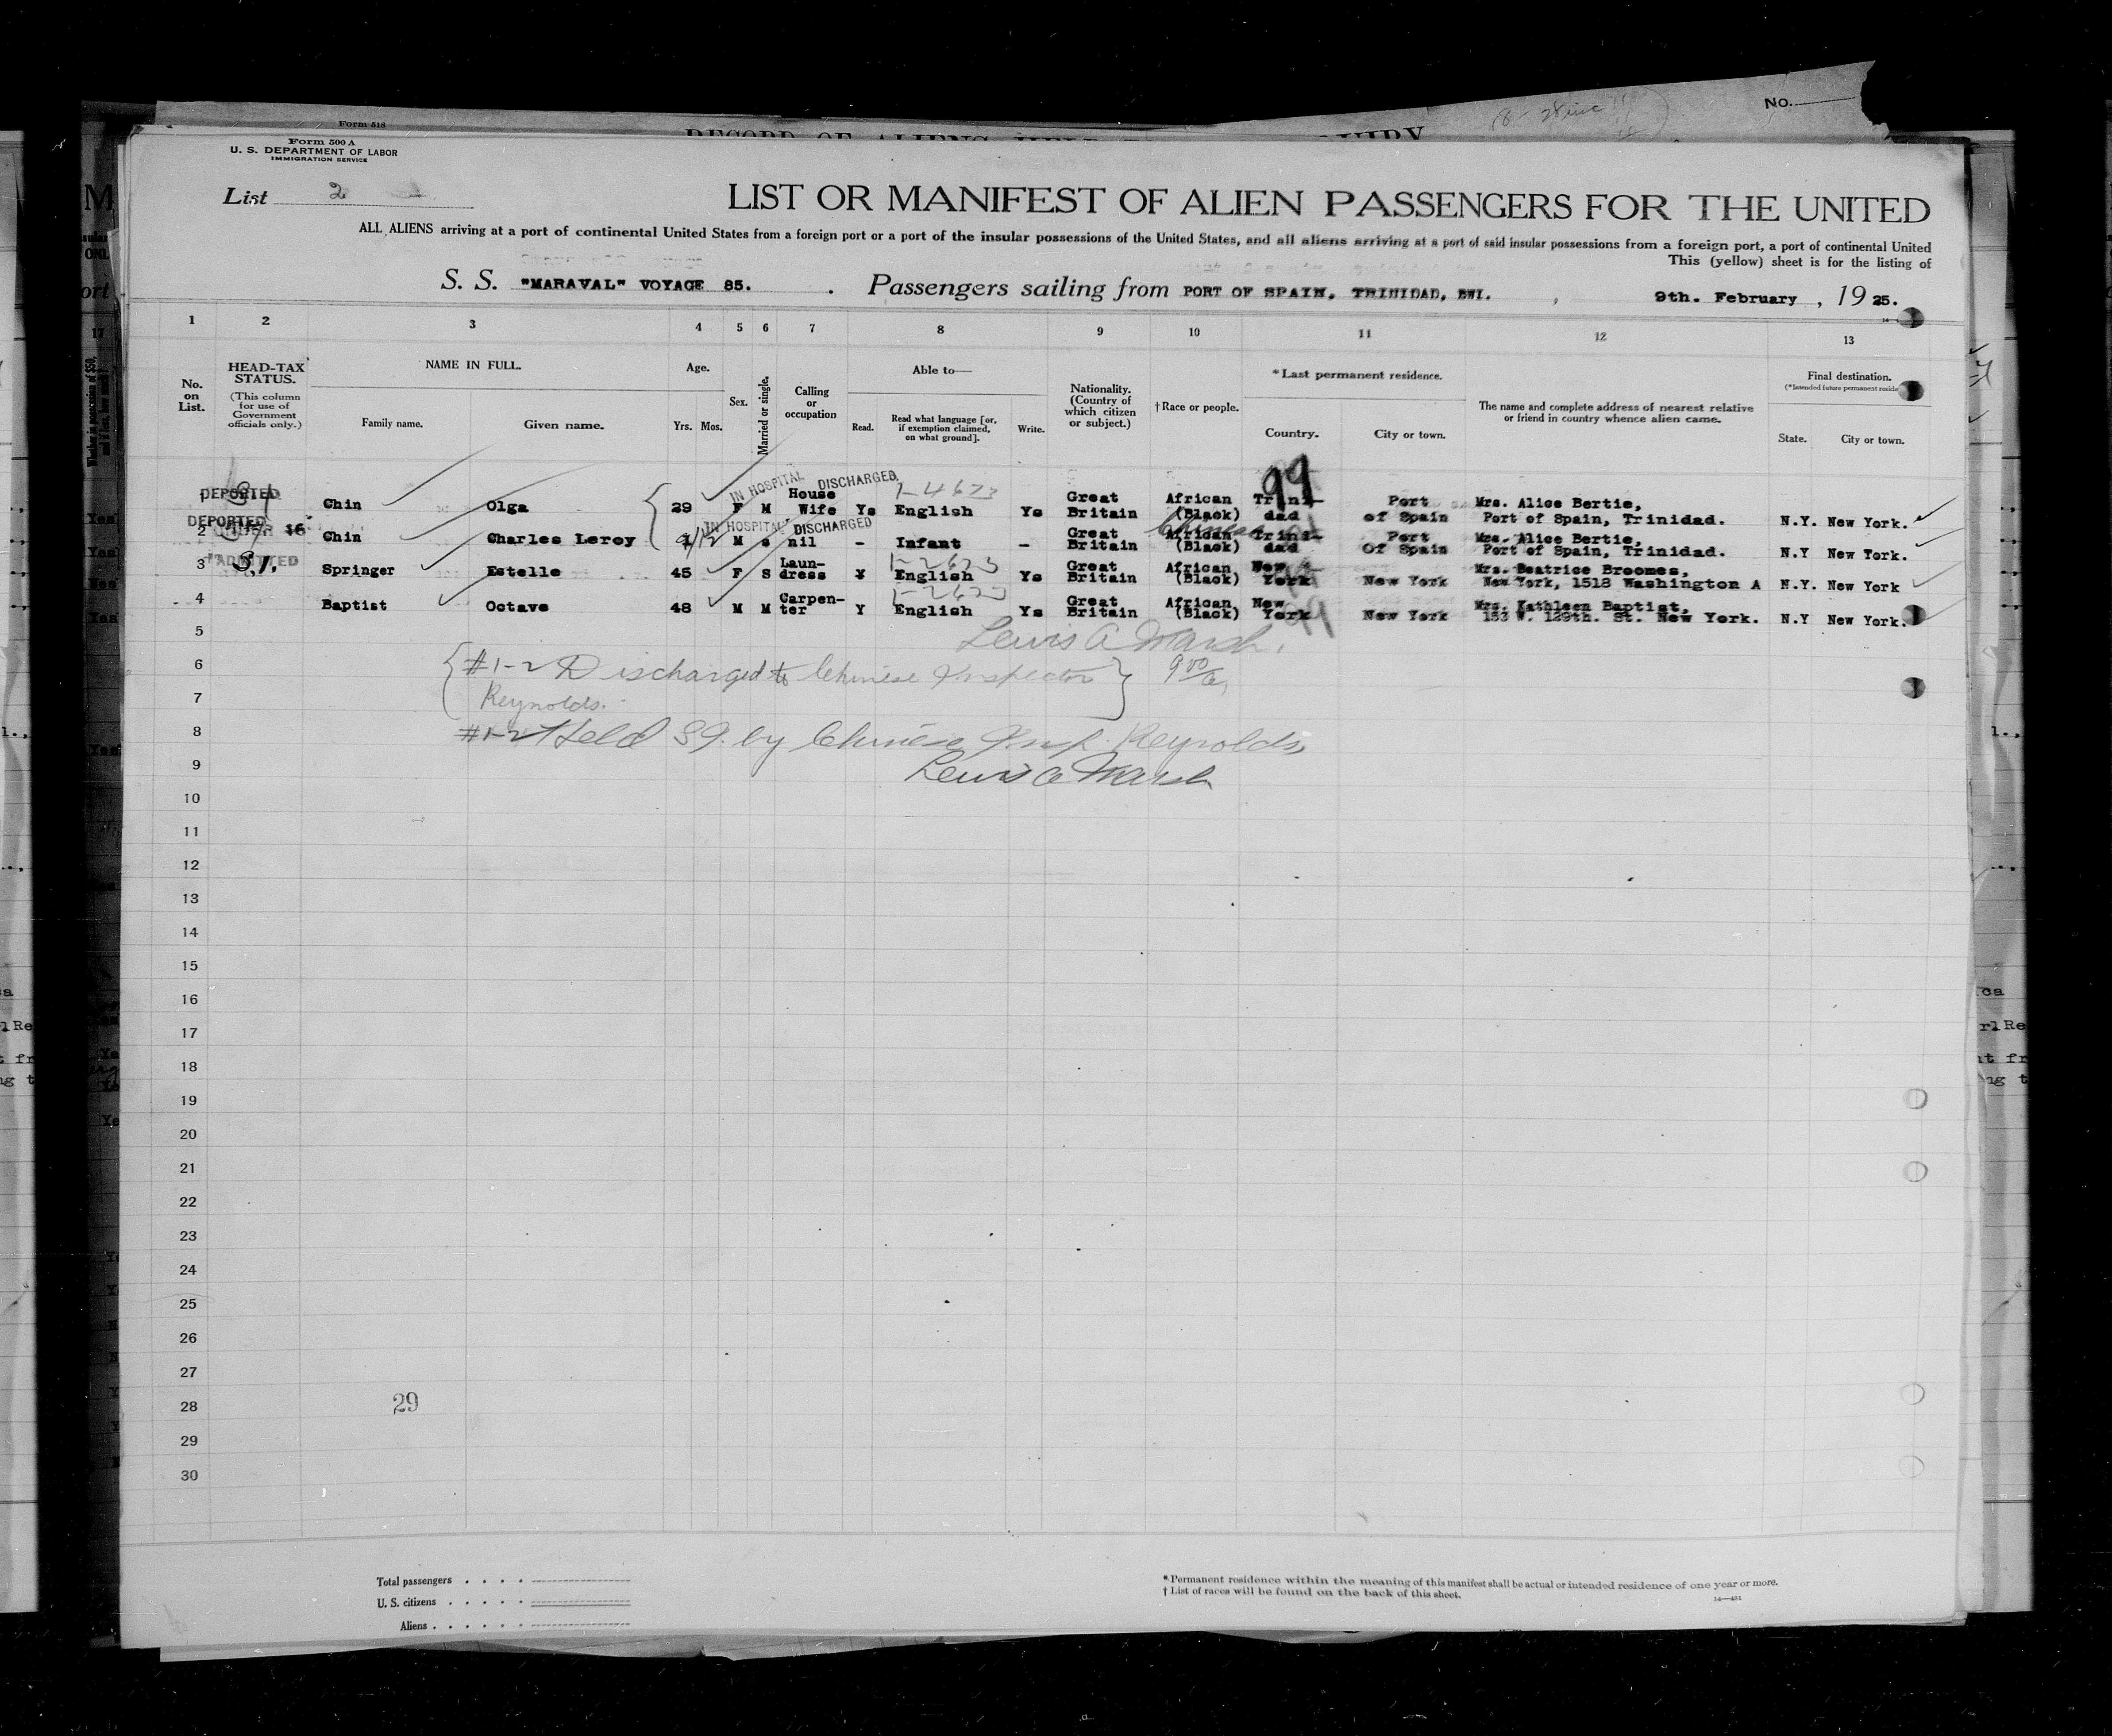 Form 518
No.
Form 500 A
U. S. DEPARTMENT OF LABOR
IMMIGRATION SERVICE
List 2
LIST OR MANIFEST OF ALIEN PASSENGERS FOR THE UNITED
ALL ALIENS arriving at a port of continental United States from a foreign port or a port of the insular possessions of the United States, and all aliens arriving at a port of said insular possessions from a foreign port, a port of continental United
This (yellow) sheet is for the listing of
S. S. "MARAVAL" VOYAGE 85. Passengers sailing from PORT OF SPAIN, TRINIDAD, BWI. , 9th. February , 19 25.
1 2 3 4 5 6 7 8 9 10 11 12 13
No. on List.
HEAD-TAX STATUS. (This column for use of Government officials only.)
NAME IN FULL.
Family name. Given name.
Age.
Yrs. Mos.
Sex.
Married or single.
Calling or occupation
Able to—
Read. Read what language [or, if exemption claimed, on what ground]. Write.
Nationality. (Country of which citizen or subject.)
†Race or people.
*Last permanent residence.
Country. City or town.
The name and complete address of nearest relative or friend in country whence alien came.
Final destination.
(*Intended future permanent reside
State. City or town.
1 DEPORTED Chin Olga 29 F M IN HOSPITAL DISCHARGED House Wife Ys English 1-4623 Ys Great Britain African (Black) Trini- dad 99 Port of Spain Mrs. Alice Bertie, Port of Spain, Trinidad. N.Y. New York.
2 DEPORTED UNDER 16 Chin Charles Leroy M s IN HOSPITAL DISCHARGED nil - Infant - Great Britain African (Black) Chinese Trini- dad Port Of Spain Mrs. Alice Bertie, Port of Spain, Trinidad. N.Y New York.
3 ADMITTED Springer Estelle 45 F S Laun- dress Y English 1-2623 Ys Great Britain African (Black) New York New York Mrs. Beatrice Broomes, New York, 1518 Washington A N.Y. New York
4 Baptist Octave 48 M M Carpen- ter Y English 1-2623 Ys Great Britain African (Black) New York New York Mrs. Kathleen Baptist, 153 W. 129th. St. New York. N.Y New York.
5 Lewis A Marsh.
6 #1-2 Discharged to Chinese Inspector
7 Reynolds.
8 #1-2 Held S.I. by Chinese Insp. Reynolds,
9 Lewis A Marsh
10
11
12
13
14
15
16
17
18
19
20
21
22
23
24
25
26
27
28 29
29
30
Total passengers . . . .
U. S. citizens . . . . .
Aliens . . . . . .
* Permanent residence within the meaning of this manifest shall be actual or intended residence of one year or more.
† List of races will be found on the back of this sheet.
14—431